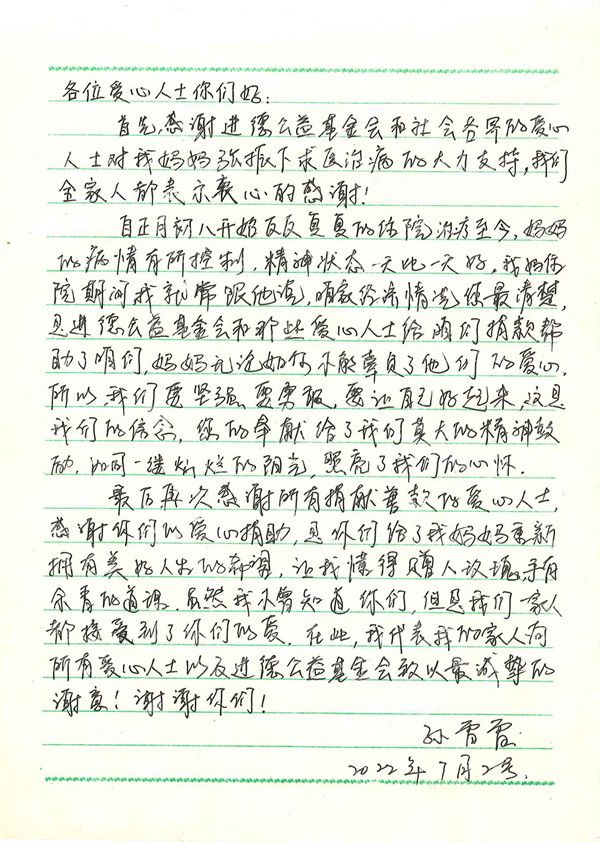 各位爱心人士你们好：
首先，感谢进德公益基金会和社会各界的爱心
人士对我妈妈张振下求医治病的大力支持，我们
全家人都表示衷心的感谢！
自正月初八开始反反复复的住院治疗至今，妈妈
的病情有所控制，精神状态一天比一天好，我妈住
院期间我就常跟他说，咱家经济情况你最清楚，
是进德公益基金会和那些爱心人士给咱们捐款帮
助了咱们，妈妈无论如何不能辜负了他们的爱心，
所以，我们要坚强、要勇敢，要让自己好起来，这是
我们的信念，您的奉献给了我们莫大的精神鼓
励，如同一缕灿烂的阳光，照亮了我们的心怀。
最后再次感谢所有捐献善款的爱心人士，
感谢你们的爱心捐助，是你们给了我妈妈重新
拥有美好人生的希望，让我懂得赠人玫瑰，手有
余香的道理。虽然我不曾知道你们，但是我们一家人
都接受到了你们的爱。在此，我代表我的家人向
所有爱心人士以及进德公益基金会致以最诚挚的
谢意！谢谢你们！
孙雪霞
2022年7月2号.